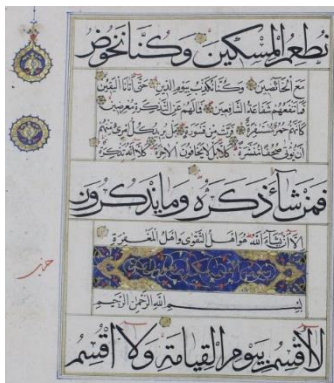 نطعم المسكين وكنا نخوض
مع الخائضين وكنا نكذب بيوم الدين حتى أتانا اليقين
فما تنفعهم شفاعة الشافعين فما لهم عن التذكرة معرضين
كأنهم حمر مستنفرة فرت من قسورة بل يريد كل امرئ منهم
أن يؤتى صحفا منشرة كلا بل لا يخافون الآخرة كلا إنه تذكرة
فمن شاء ذكره وما يذكرون
إلا أن يشاء الله هو أهل التقوى وأهل المغفرة
بسم الله الرحمن الرحيم
لا أقسم بيوم القيامة ولا أقسم